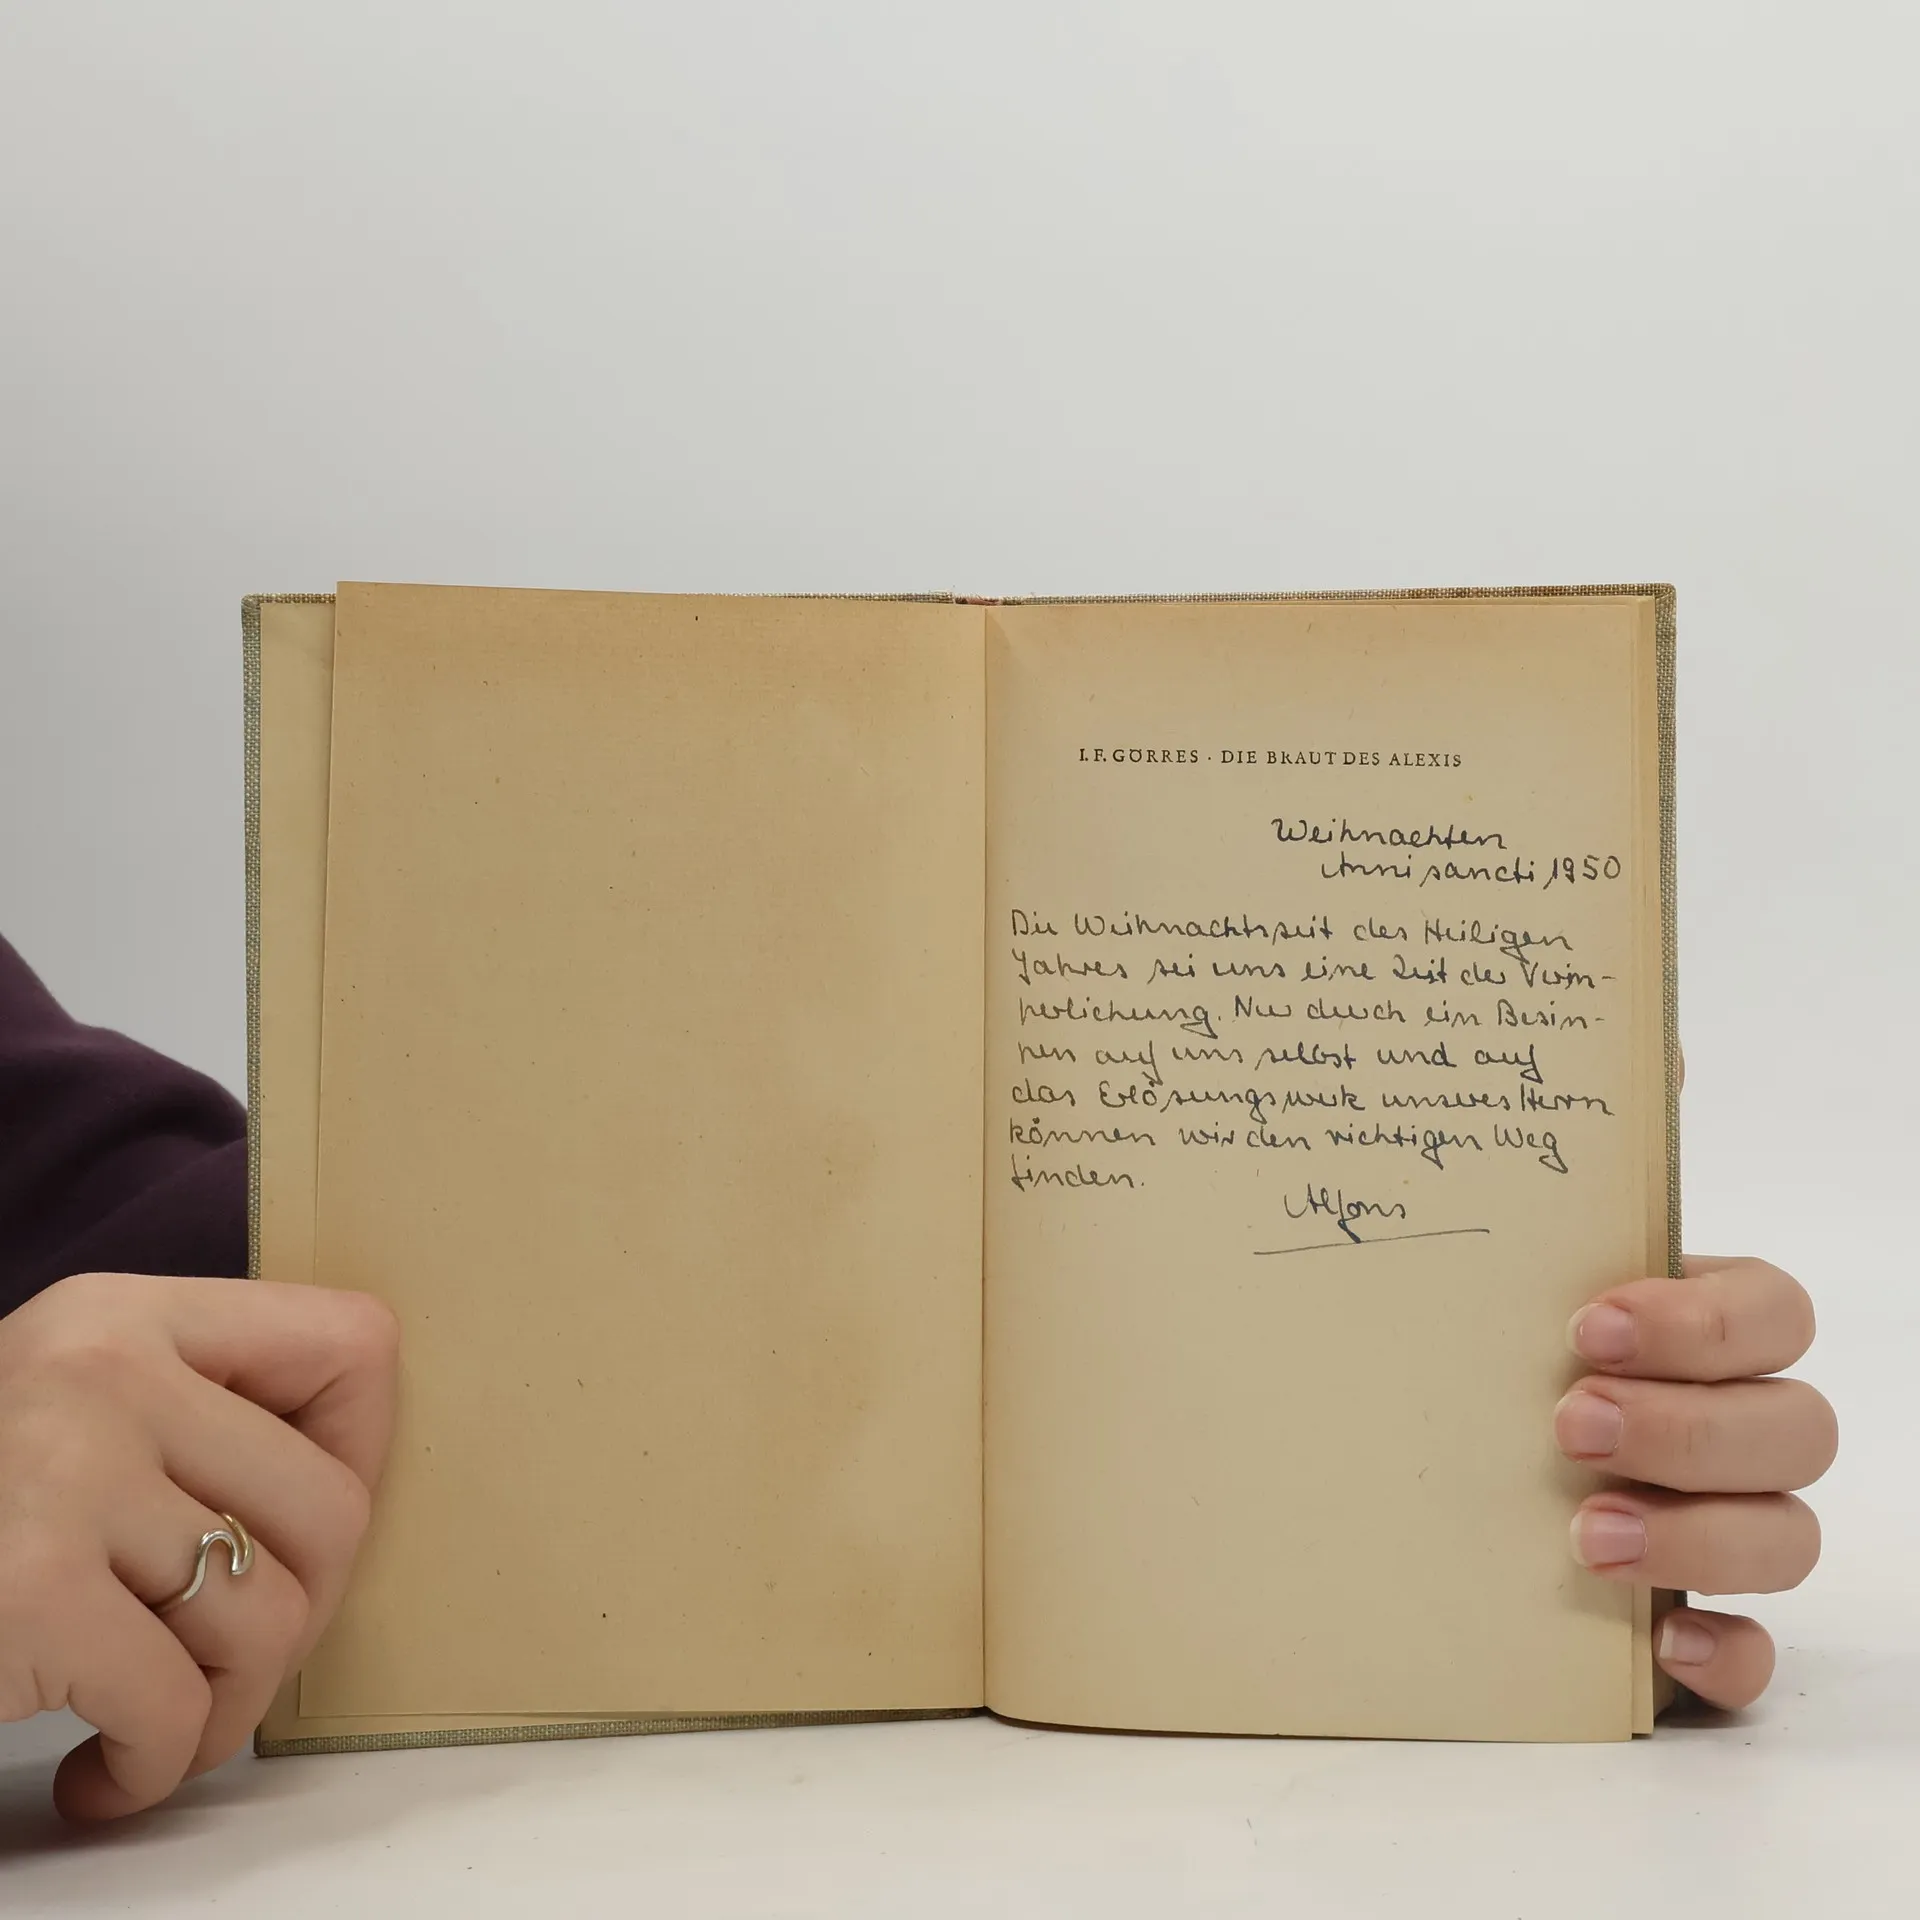 I. F. GÖRRES · DIE BRAUT DES ALEXIS
Weihnachten
Anni sancti 1950
Die Weihnachtszeit des Heiligen
Jahres sei uns eine Zeit der Verin-
nerlichung. Nur durch ein Besin-
nen auf uns selbst und auf
das Erlösungswerk unseres Herrn
können wir den richtigen Weg
finden.
Alfons